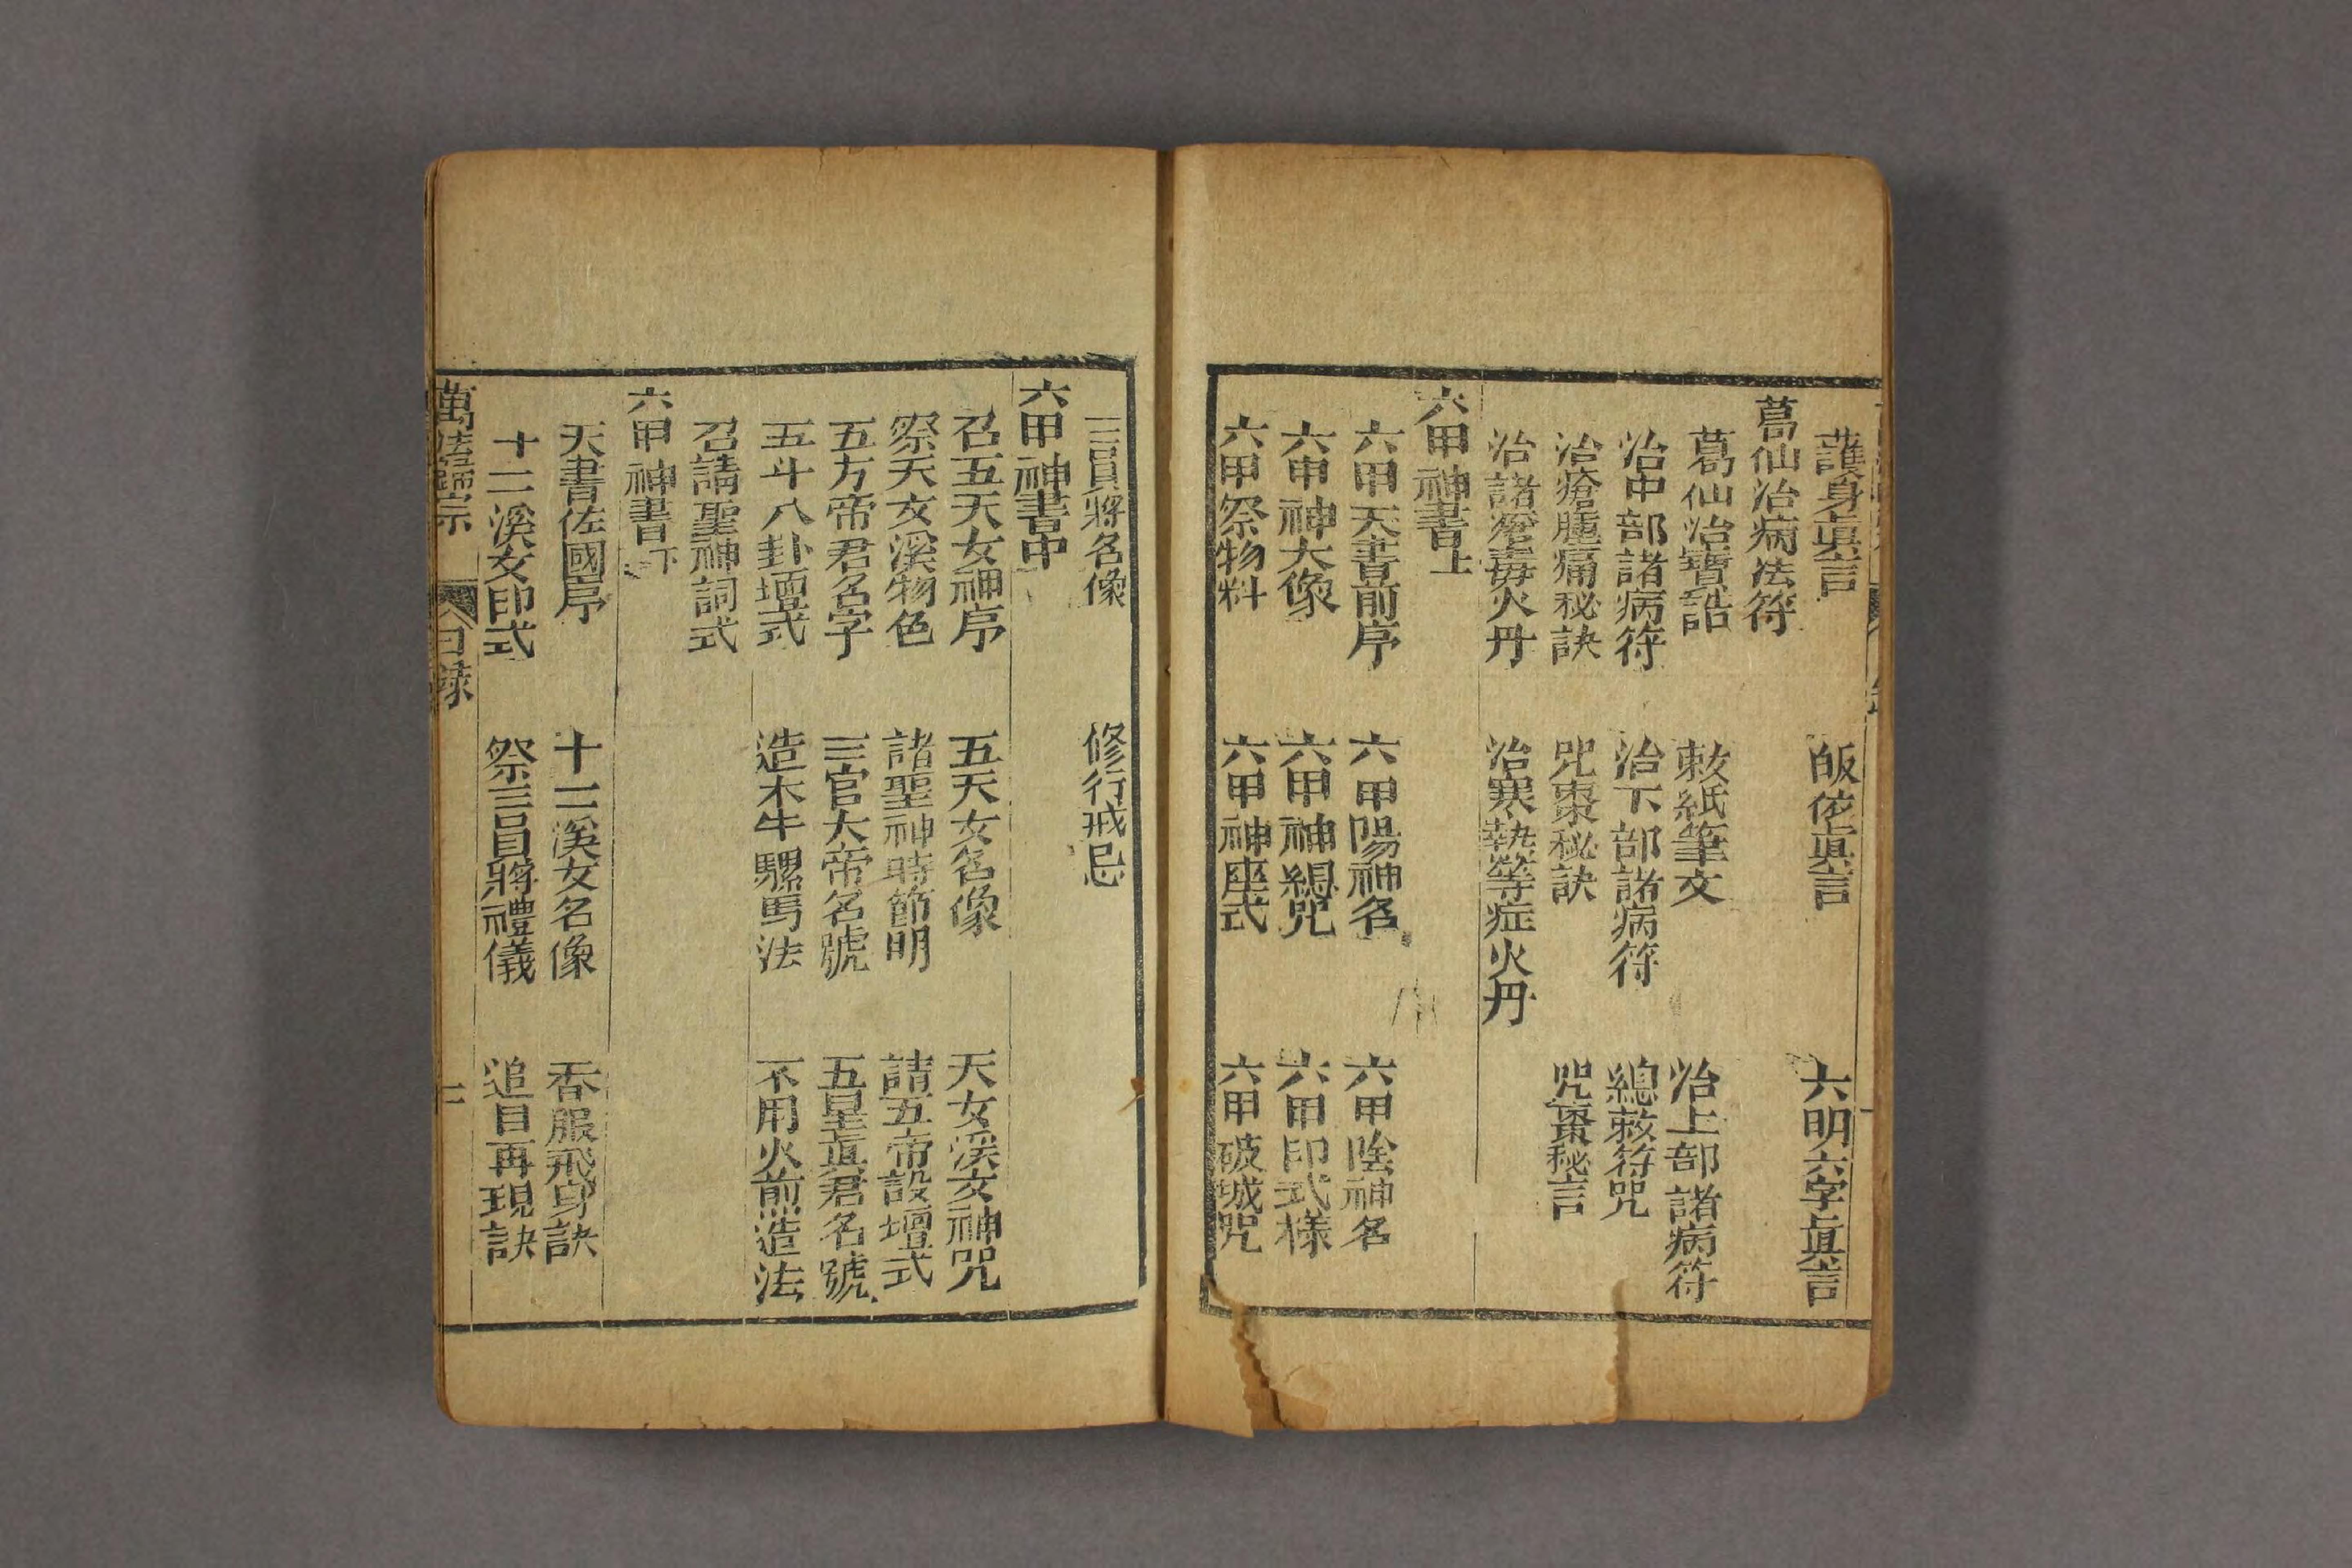 護身真言　皈依真言　六明六字真言
葛仙治病法符
葛仙治寶誥　敕紙筆文　治上部諸病符
治中部諸病符　治下部諸病符　總敕符咒
治瘡腫痛秘訣　咒棗秘訣　咒棗秘言
治諸瘡毒火丹　治寒熱等症火丹
六甲神書上
六甲天書前序　六甲陽神名　六甲陰神名
六甲神大像　六甲神總咒　六甲印式樣
六甲祭物料　六甲神座式　六甲破城咒
三員將名像　修行戒忌
六甲神書中
召五天女神序　五天女名像　天女溪女神咒
祭天女溪物色　諸聖神時節明　請五帝設壇式
五方帝君名字　三官大帝名號　五星真君名號
五斗八卦壇式　造木牛騾馬法　不用火煎造法
召請聖神詞式
六甲神書下
天書佐國序　十二溪女名像　香服飛身訣
十二溪女印式　祭三員將禮儀　追目再現訣
萬法歸宗　目錄　二